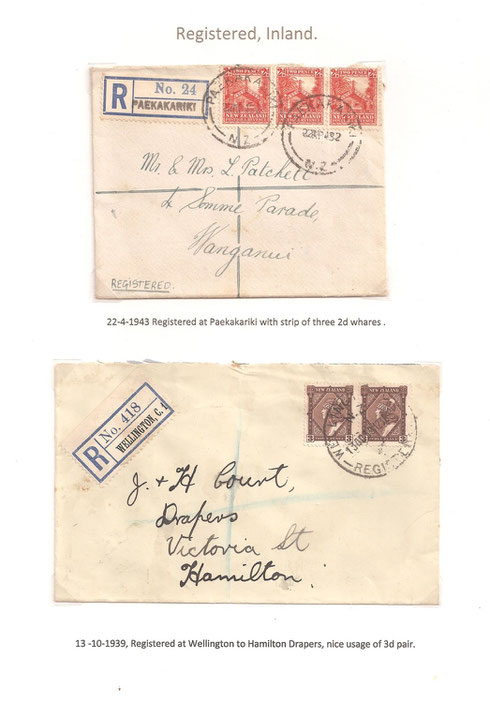 Registered, Inland.
R No. 24
PAEKAKARIKI
TWO PENCE 2D
TWO PENCE 2D
TWO PENCE 2D
NEW ZEALAND
NEW ZEALAND
NEW ZEALAND
N.Z
N.Z
Mr. & Mrs. L. Patchett
Somme Parade,
Wanganui
REGISTERED.
22-4-1943 Registered at Paekakariki with strip of three 2d whares .
R No. 418
WELLINGTON, C. 1.
NEW ZEALAND
NEW ZEALAND
3 3
3 3
REGIST
J. & H Court,
Drapers
Victoria St
Hamilton.
13 -10-1939, Registered at Wellington to Hamilton Drapers, nice usage of 3d pair.